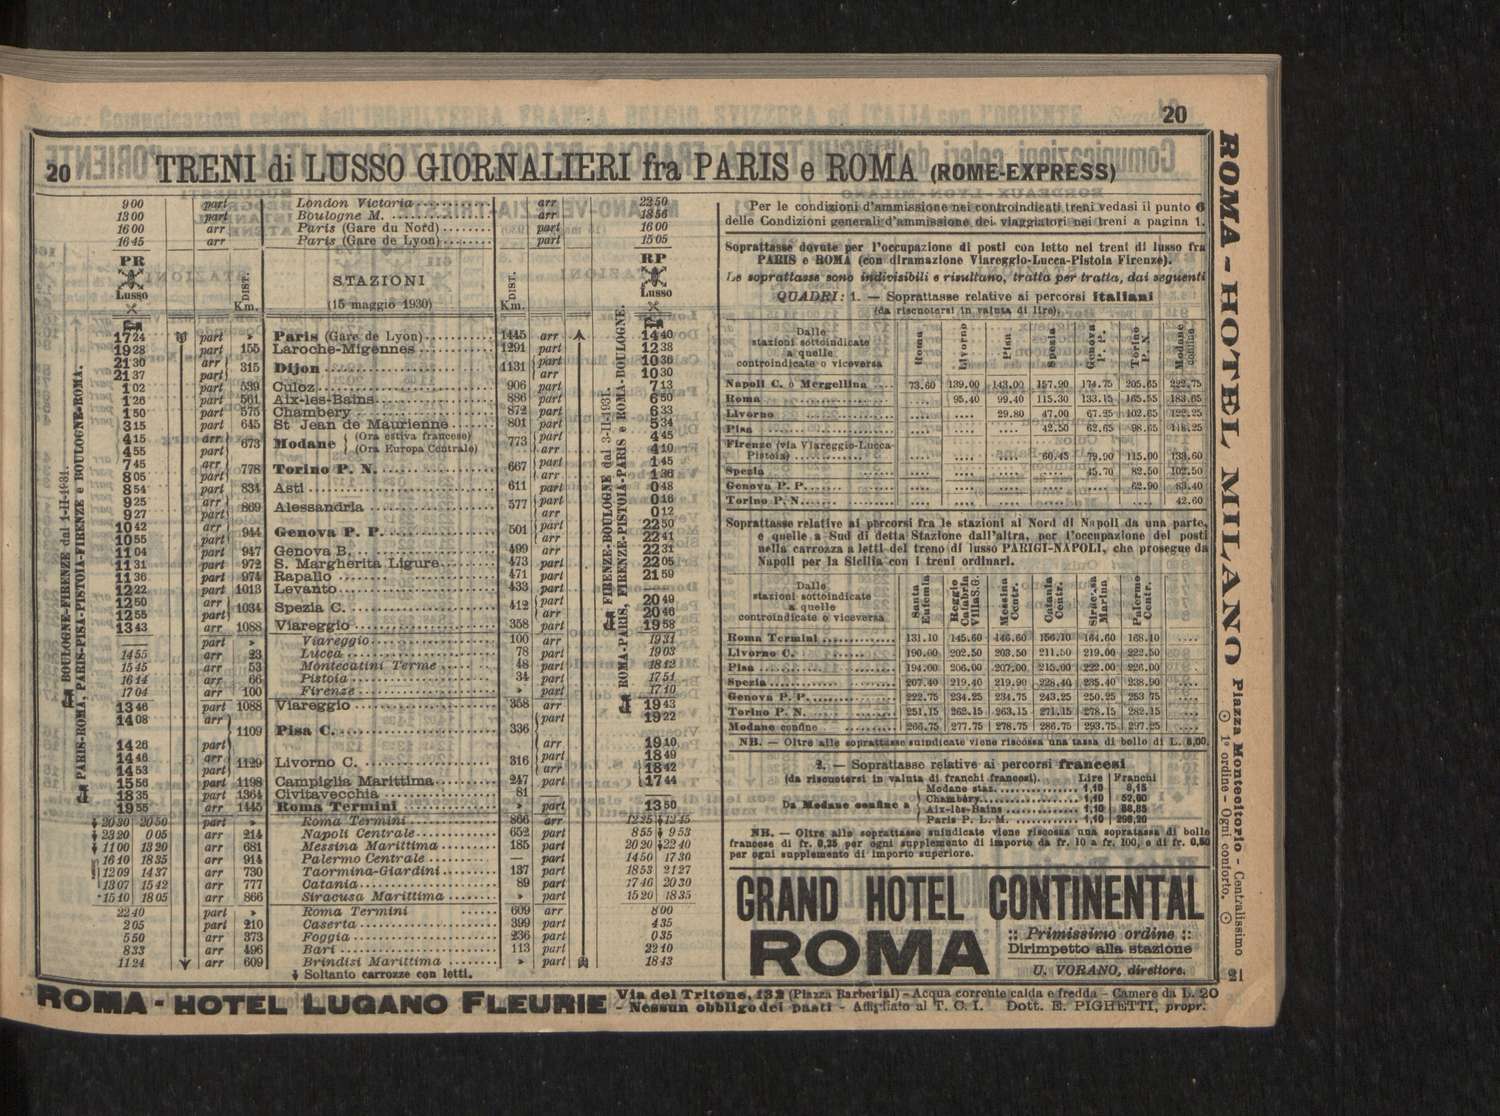 20
20 TRENI di LUSSO GIORNALIERI fra PARIS e ROMA (ROME-EXPRESS)
9 00 part London Victoria arr 22 50
13 00 part Boulogne M. arr 18 56
16 00 arr Paris (Gare du Nord) part 16 00
16 45 arr Paris (Gare de Lyon) part 15 05
PR Lusso DIST. Km. STAZIONI (15 maggio 1930) DIST. Km. RP Lusso
BOULOGNE-FIRENZE dal 1-II-1931.
PARIS-ROMA, PARIS-PISA-PISTOIA-FIRENZE e BOULOGNE-ROMA.
FIRENZE-BOULOGNE dal 3-II-1931.
ROMA-PARIS, FIRENZE-PISTOIA-PARIS e ROMA-BOULOGNE.
17 24 part » Paris (Gare de Lyon) 1445 arr 14 40
19 28 part 155 Laroche-Migennes 1291 part 12 38
21 30 arr 315 Dijon 1131 part 10 36
21 37 part arr 10 30
1 02 part 539 Culoz 906 part 7 13
1 26 part 561 Aix-les-Bains 886 part 6 50
1 50 part 575 Chambery 872 part 6 33
3 15 part 645 St Jean de Maurienne 801 part 5 34
4 15 arr 673 Modane (Ora estiva francese) 773 part 4 45
4 55 part (Ora Europa Centrale) arr 4 10
7 45 arr 778 Torino P. N. 667 part 1 45
8 05 part arr 1 36
8 54 part 834 Asti 611 part 0 48
9 25 arr 869 Alessandria 577 part 0 16
9 27 part arr 0 12
10 42 arr 944 Genova P. P. 501 part 22 50
10 55 part arr 22 41
11 04 part 947 Genova B. 499 arr 22 31
11 31 part 972 S. Margherita Ligure 473 part 22 05
11 36 part 974 Rapallo 471 part 21 59
12 22 part 1013 Levanto 433 part
12 50 arr 1034 Spezia C. 412 part 20 49
12 55 part arr 20 46
13 43 arr 1088 Viareggio 358 part 19 58
part » Viareggio 100 arr 19 31
14 55 arr 23 Lucca 78 part 19 03
15 45 arr 53 Montecatini Terme 48 part 18 12
16 14 arr 66 Pistoia 34 part 17 51
17 04 arr 100 Firenze » part 17 10
13 46 part 1088 Viareggio 358 arr 19 43
14 08 arr 1109 Pisa C. 336 part 19 22
14 26 part arr 19 10
14 46 arr 1129 Livorno C. 316 part 18 49
14 53 part arr 18 42
15 56 part 1198 Campiglia Marittima 247 part 17 44
18 35 part 1364 Civitavecchia 81
19 55 arr 1445 Roma Termini » part 13 50
20 20 20 50 part » Roma Termini 866 arr 12 25 12 45
23 20 0 05 arr 214 Napoli Centrale 652 part 8 55 9 53
11 00 13 20 arr 681 Messina Marittima 185 part 20 20 22 40
16 10 18 35 arr 914 Palermo Centrale — part 14 50 17 30
12 09 14 37 arr 730 Taormina-Giardini 137 part 18 53 21 27
13 07 15 42 arr 777 Catania 89 part 17 46 20 30
15 10 18 05 arr 866 Siracusa Marittima » part 15 20 18 35
22 40 part » Roma Termini 609 arr 8 00
2 05 part 210 Caserta 399 part 4 35
5 50 arr 373 Foggia 236 part 0 35
8 33 arr 496 Bari 113 part 22 10
11 24 arr 609 Brindisi Marittima » part 18 43
Soltanto carrozze con letti.
Per le condizioni d'ammissione nei controindicati treni vedasi il punto 6
delle Condizioni generali d'ammissione dei viaggiatori nei treni a pagina 1.
Soprattasse dovute per l'occupazione di posti con letto nei treni di lusso fra
PARIS e ROMA (con diramazione Viareggio-Lucca-Pistoia Firenze).
Le soprattasse sono indivisibili e risultano, tratta per tratta, dai seguenti
QUADRI: 1. — Soprattasse relative ai percorsi italiani
(da riscuotersi in valuta di lire).
Dalle stazioni sottoindicate a quelle controindicate o viceversa Roma Livorno Pisa Spezia Genova P. P. Torino P. N. Modane confine
Napoli C. o Mergellina 73.60 139.00 143.00 157.90 174.75 205.65 222.75
Roma .... 95.40 99.40 115.30 133.15 165.55 183.65
Livorno .... .... 29.80 47.00 67.25 102.65 122.25
Pisa .... .... .... 42.50 62.65 98.65 118.25
Firenze (via Viareggio-Lucca-
Pistoia) .... .... .... 60.45 79.90 115.00 133.60
Spezia .... .... .... .... 45.70 82.50 102.50
Genova P. P. .... .... .... .... .... 62.90 83.40
Torino P. N. .... .... .... .... .... .... 42.60
Soprattasse relative ai percorsi fra le stazioni al Nord di Napoli da una parte,
e quelle a Sud di detta Stazione dall'altra, per l'occupazione dei posti
nella carrozza a letti del treno di lusso PARIGI-NAPOLI, che prosegue da
Napoli per la Sicilia con i treni ordinari.
Dalle stazioni sottoindicate a quelle controindicate o viceversa Santa Eufemia Reggio Calabria Villa S. G. Messina Centr. Catania Centr. Siracusa Marina Palermo Centr.
Roma Termini 131.10 145.60 146.60 156.10 164.60 168.10 ....
Livorno C. 190.00 202.50 203.50 211.50 219.00 222.50 ....
Pisa 194.00 206.00 207.00 215.00 222.00 226.00 ....
Spezia 207.40 219.40 219.90 228.40 235.40 238.90 ....
Genova P. P. 222.75 234.25 234.75 243.25 250.25 253 75 ....
Torino P. N. 251.15 262.15 263.15 271.15 278.15 282.15 ....
Modane confine 266.75 277.75 278.75 286.75 293.75 297.25 ....
NB. — Oltre alle soprattasse suindicate viene riscossa una tassa di bollo di L. 6,00.
2. — Soprattasse relative ai percorsi francesi
(da riscuotersi in valuta di franchi francesi). Lire Franchi
Da Modane confine a
Modane staz. 1,10 8,15
Chambéry 1,10 52,60
Aix-les-Bains 1,10 56,85
Paris P. L. M. 1,10 298,20
NB. — Oltre alle soprattasse suindicate viene riscossa una sopratassa di bollo
francese di fr. 0,25 per ogni supplemento di importo da fr. 10 a fr. 100, e di fr. 0,50
per ogni supplemento di importo superiore.
GRAND HOTEL CONTINENTAL
ROMA
:: Primissimo ordine ::
Dirimpetto alla stazione
U. VORANO, direttore.
ROMA - HOTEL MILANO Piazza Montecitorio - Centralissimo
1° ordine - Ogni conforto.
21
ROMA - HOTEL LUGANO FLEURIE Via del Tritone, 132 (Piazza Barberini) - Acqua corrente calda e fredda - Camere da L. 20
- Nessun obbligo dei pasti - Affigliato al T. C. I. Dott. E. PIGHETTI, propr.